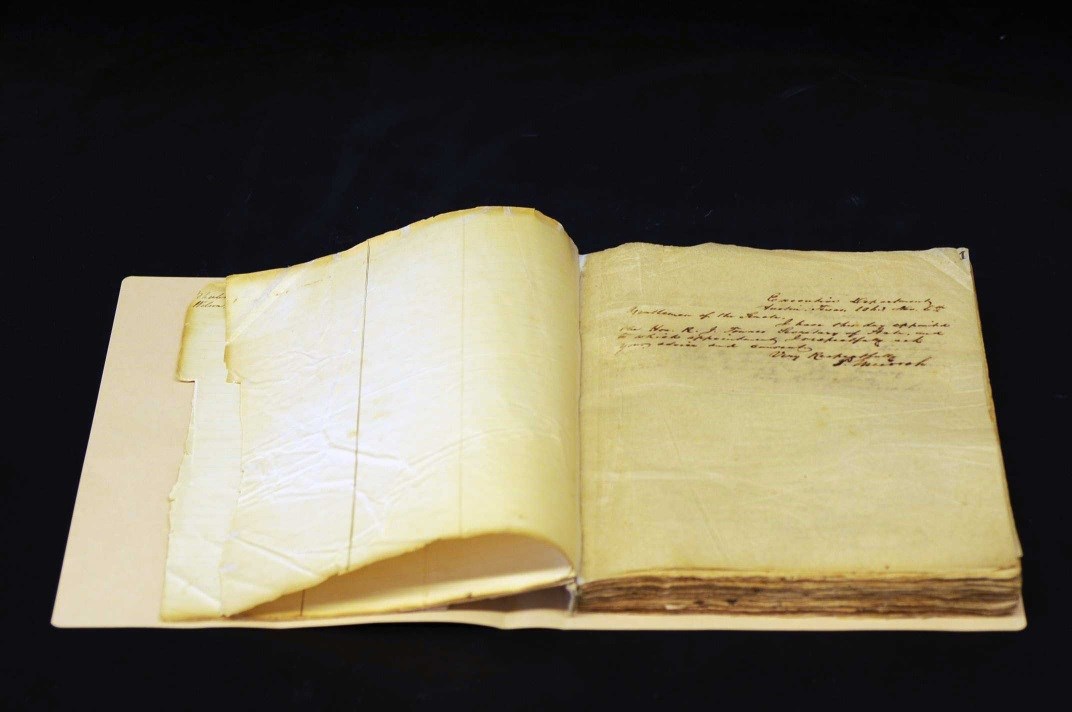 1
Executive Department
Austin, Texas, 1863 Nov.
Gentlemen of the Senate,
I have this day appointed
the Hon. R. J. Townes Secretary of State, and
to which appointment, I respectfully ask
your advice and consent.
Very Respectfully
P. Murrah